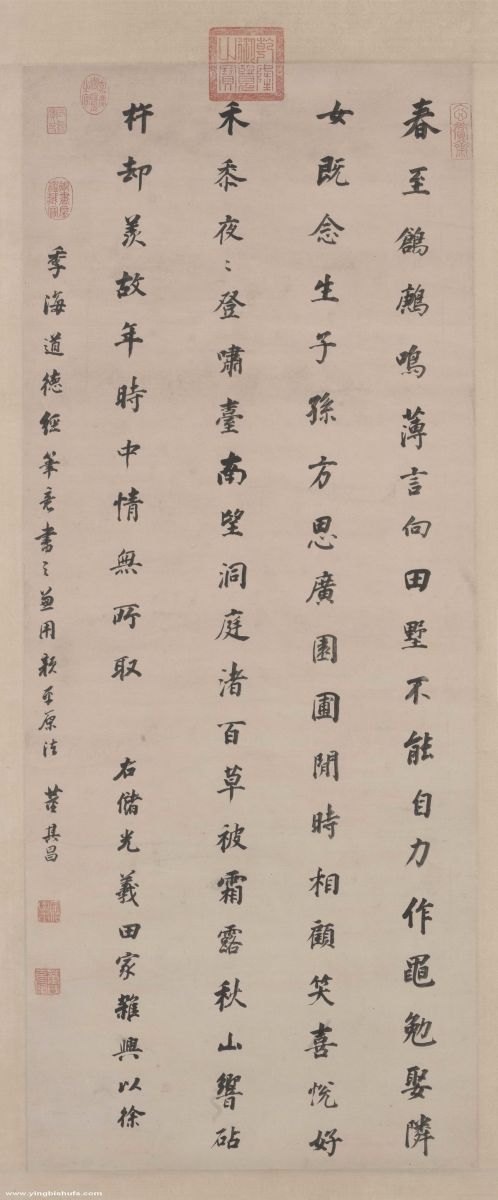 春至鶬鶊鳴薄言向田墅不能自力作黽勉娶隣
女既念生子孫方思廣園圃閒時相顧笑喜悅好
禾黍夜〻登嘯臺南望洞庭渚百草被霜露秋山響砧
杵却羨故年時中情無所取 右儲光羲田家雜興以徐
季海道德經筆意書之兼用顏平原法 董其昌
乾隆御覽之寶
www.yingbishufa.com